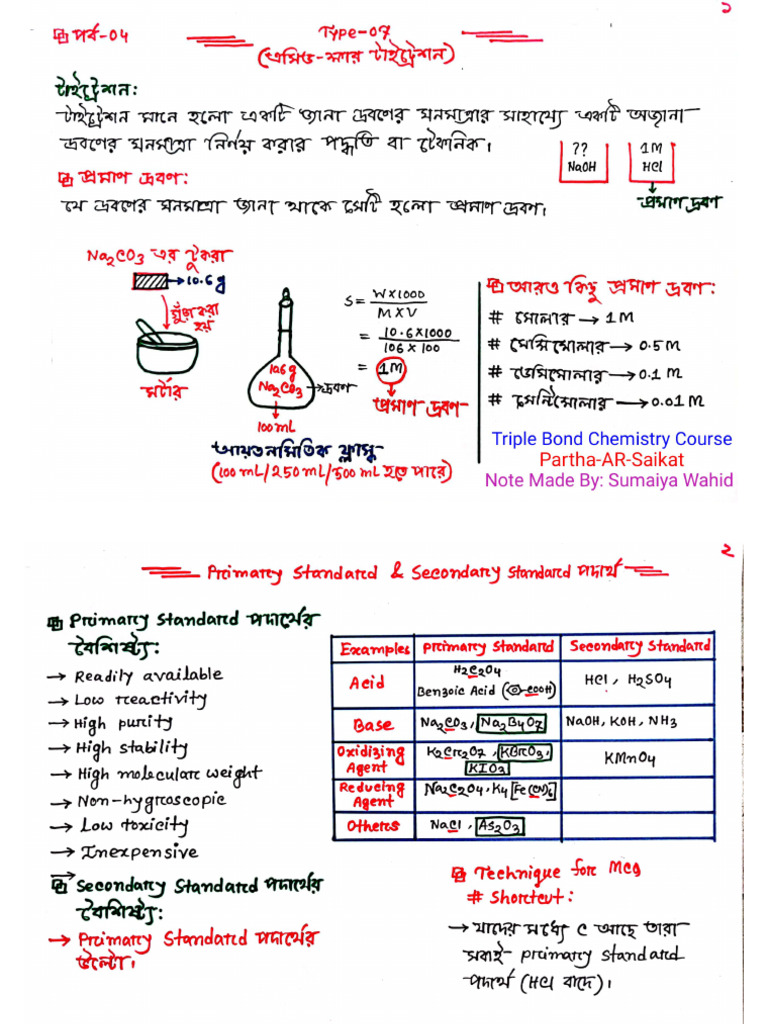 ১
পর্ব-০৪
Type-07
(এসিড-ক্ষার টাইট্রেশন)
টাইট্রেশন:
টাইট্রেশন মানে হলো একটি জানা দ্রবণের ঘনমাত্রার সাহায্যে একটি অজানা
দ্রবণের ঘনমাত্রা নির্ণয় করার পদ্ধতি বা টেকনিক।
??
NaOH
1M
HCl
প্রমাণ দ্রবণ
প্রমাণ দ্রবণ:
যে দ্রবণের ঘনমাত্রা জানা থাকে সেটি হলো প্রমাণ দ্রবণ।
Na2CO3 এর টুকরা
→10.6g
গুঁড়া করা
হয়
মর্টার
10.6g
Na2CO3
→দ্রবণ
100mL
আয়তনমিতিক ফ্লাস্ক
(100mL/250mL/500mL হতে পারে)
S = W×1000 / M×V
= 10.6×1000 / 106×100
= 1M
প্রমাণ দ্রবণ
আরও কিছু প্রমাণ দ্রবণ:
# মোলার → 1M
# সেমিমোলার → 0.5M
# ডেসিমোলার → 0.1M
# সেন্টিমোলার → 0.01M
Triple Bond Chemistry Course
Partha-AR-Saikat
Note Made By: Sumaiya Wahid
২
Primary Standard & Secondary Standard পদার্থ
Primary Standard পদার্থের
বৈশিষ্ট্য:
→ Readily available
→ Low reactivity
→ High purity
→ High stability
→ High molecular weight
→ Non-hygroscopic
→ Low toxicity
→ Inexpensive
Secondary Standard পদার্থের
বৈশিষ্ট্য:
→ Primary Standard পদার্থের
উল্টো।
Examples Primary Standard Secondary Standard
Acid H2C2O4 HCl, H2SO4
Benzoic Acid (-COOH)
Base Na2CO3, Na2B4O7 NaOH, KOH, NH3
Oxidizing Agent K2Cr2O7, KBrO3, KIO3 KMnO4
Reducing Agent Na2C2O4, K4[Fe(CN)6]
Others NaCl, As2O3
Technique for Mcq
# Shortcut:
→ যাদের মধ্যে C আছে তারা
সবাই- primary standard
পদার্থ (HCl বাদে)।